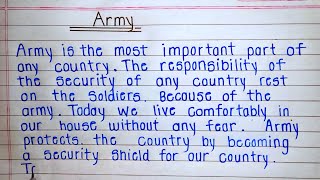 Army
Army is the most important part of
any country. The responsibility of
the security of any country rest
on the Soldiers. Because of the
army. Today we live comfortably in
our house without any fear. Army
protects. the country by becoming
a security shield for our country.